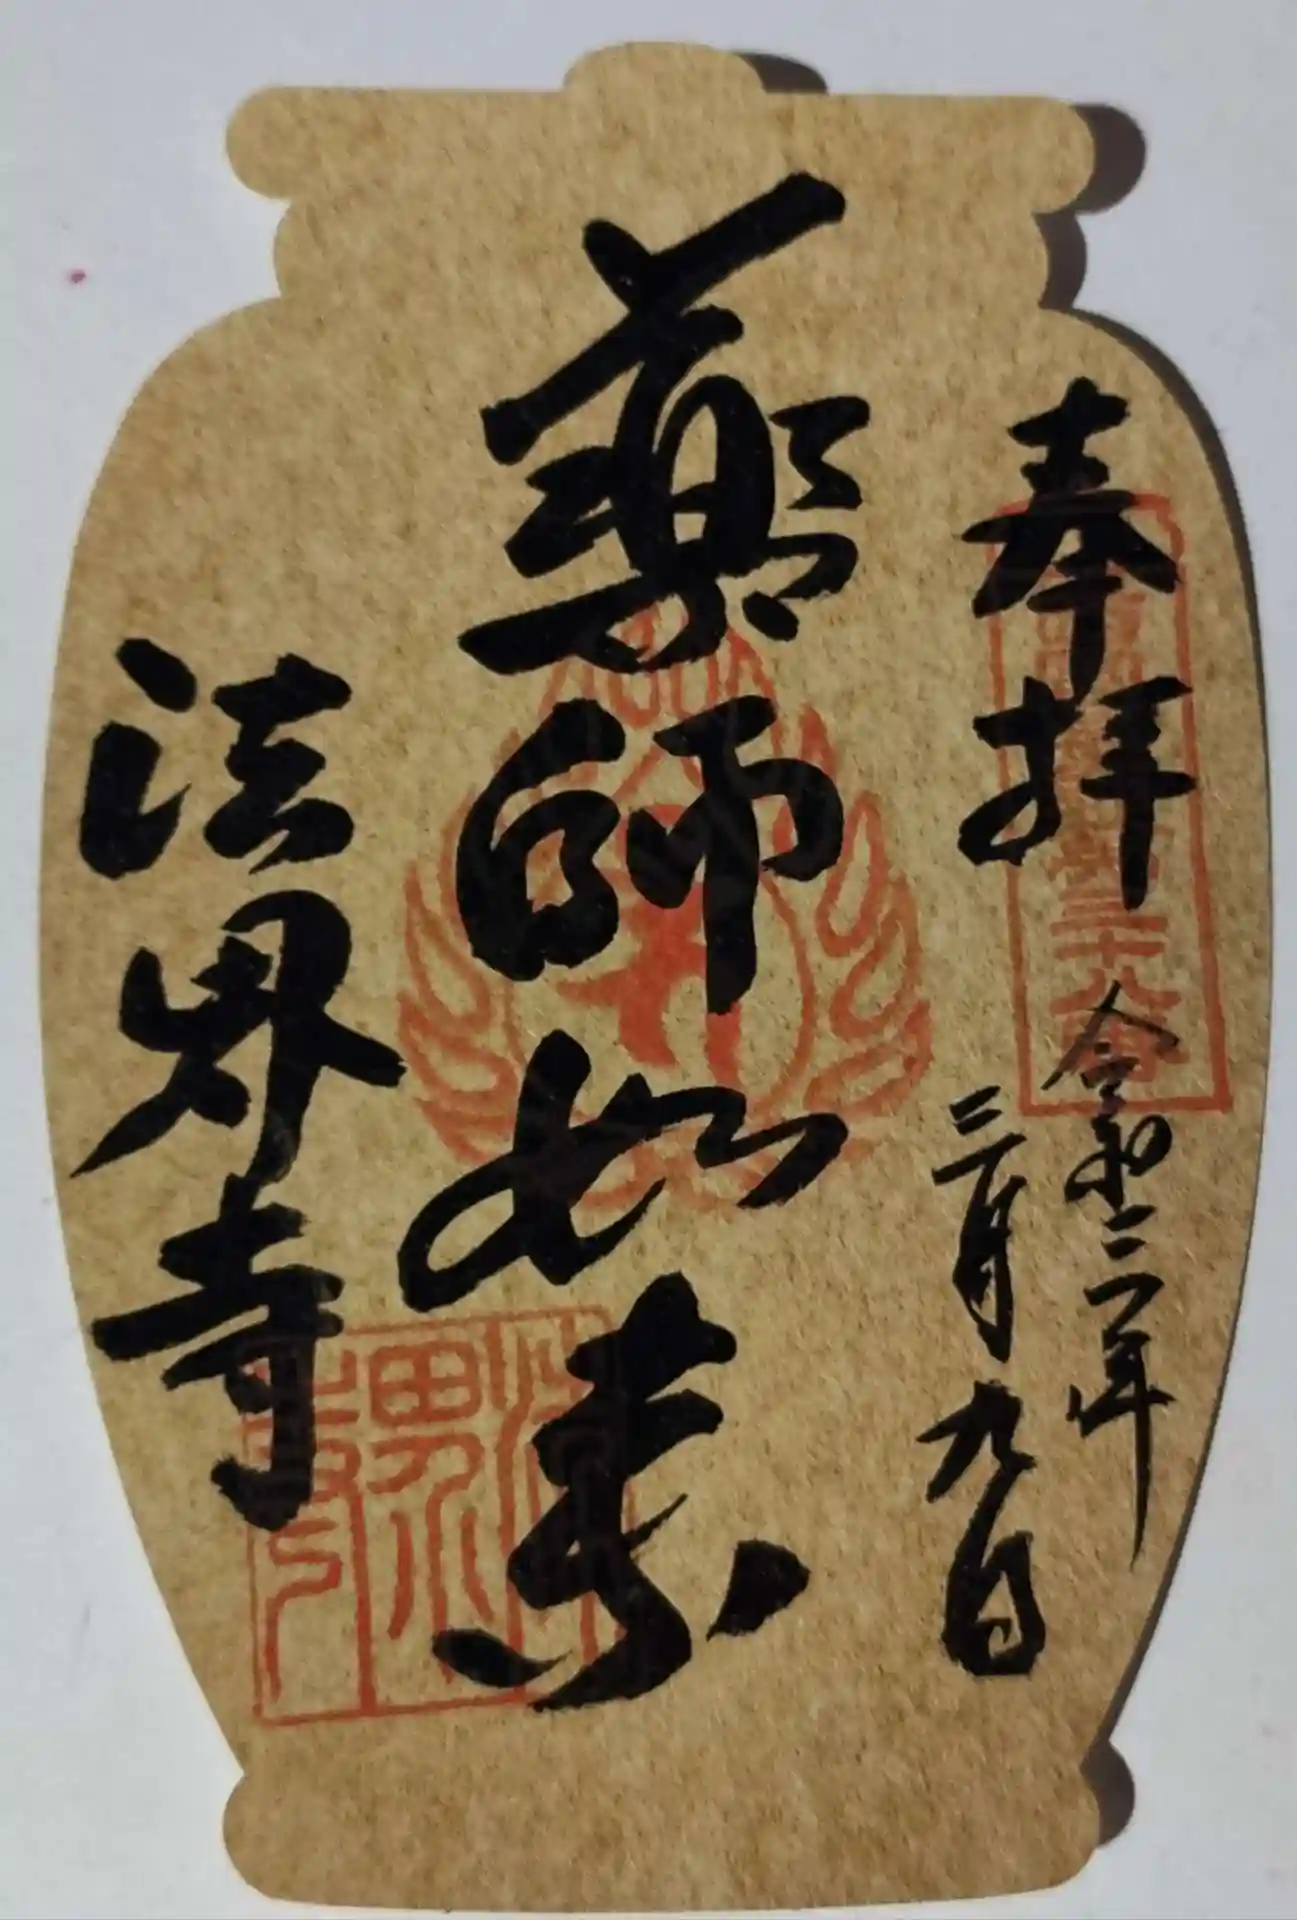 奉拝
令和二年
三月九日
薬師如来
法界寺